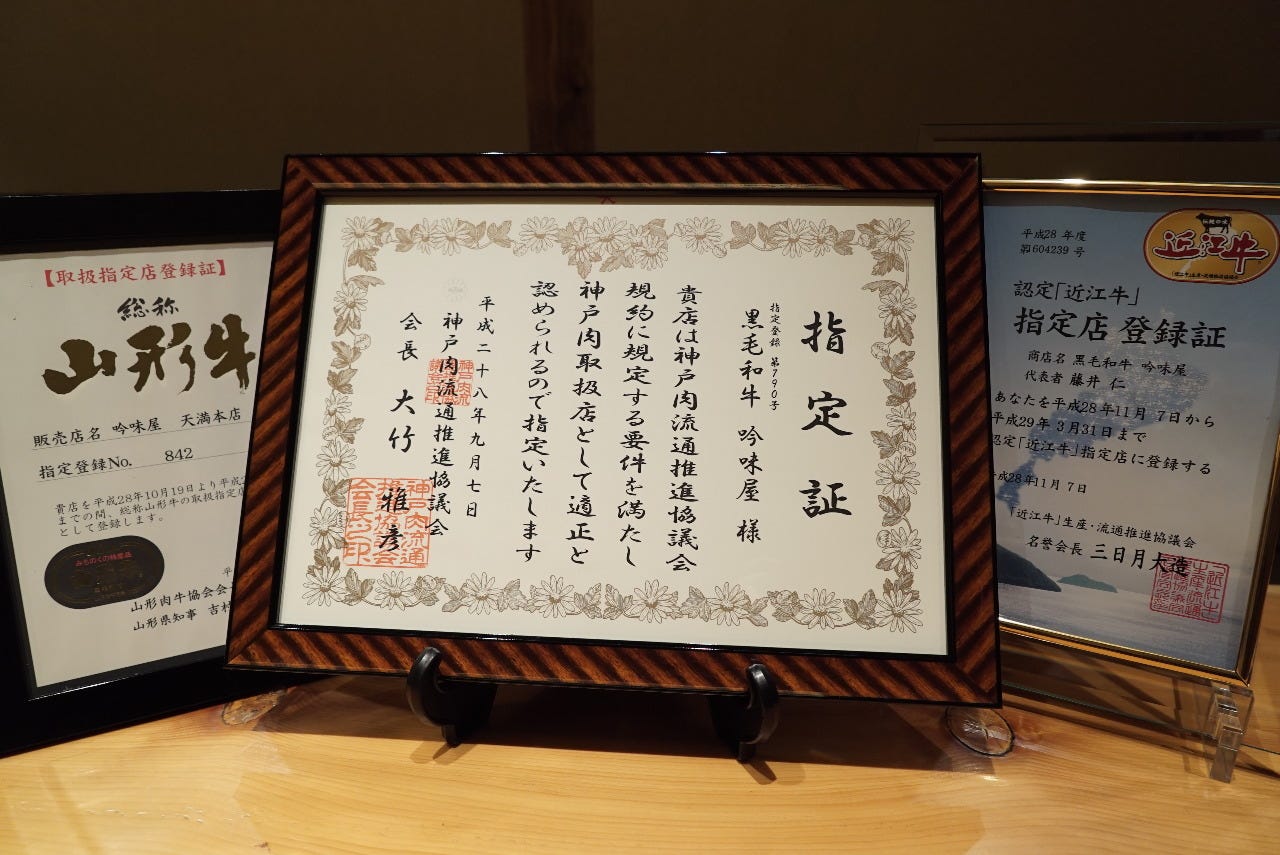 【取扱指定店登録証】
総称
山形牛
販売店名 吟味屋 天満本店
指定登録No. 842
貴店を平成28年10月19日より平成
までの間、総称山形牛の取扱指定店
として登録します。
みちのくの特産品
山形肉牛協会会
山形県知事 吉村
指定証
指定登録 第790号
黒毛和牛 吟味屋 様
貴店は神戸肉流通推進協議会
規約に規定する要件を満たし
神戸肉取扱店として適正と
認められるので指定いたします
平成二十八年九月七日
神戸肉流通推進協議会
会長 大竹 雅彦
神戸肉流通
推進協議会
会長之印
平成28年度
第604239号
近江牛
認定「近江牛」
指定店 登録証
商店名 黒毛和牛 吟味屋
代表者 藤井 仁
あなたを平成28年11月 7日から
平成29年 3月31日まで
認定「近江牛」指定店に登録する
平成28年11月 7日
「近江牛」生産・流通推進協議会
名誉会長 三日月大造